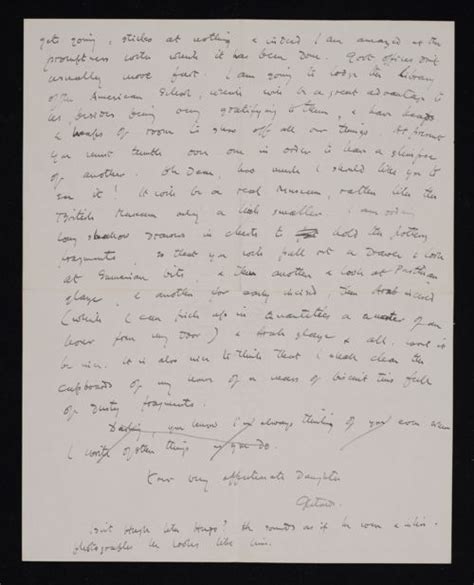 get going, sticks at nothing & indeed I am amazed at the
promptness with which it has been done. Govt offices don't
usually move fast. I am going to lodge the Library
of the American School, which will be a great advantage to
us, besides being very gratifying to them, & have heaps
& heaps of room to show off all our things. At present
you must tumble over one in order to have a glimpse
of another. Oh Dear, how much I should like you to
see it! It will be a real Museum, rather like the
British Museum only a little smaller. I am
long shallow drawers in chests to hold the pottery
fragments, so that you will pull out a Drawer & look
at Sumerian bits, & then another & look at Parthian
glaze, & another for early incised then Arab incised
(which I can pick up in quantities a quarter of an
hour from my door) & Arab glaze & all. won't it
be nice. it is also nice to think that I shall clear the
cupboards of my house of a mass of biscuit tins full
of dusty fragments.
Darling, you know I'm always thinking of you even when
I write of other things as you Do.
Your very affectionate Daughter
Gertrude.
Isn't Hugh like Hugo? He sounds as if he were & in his
photographs he looks like him.